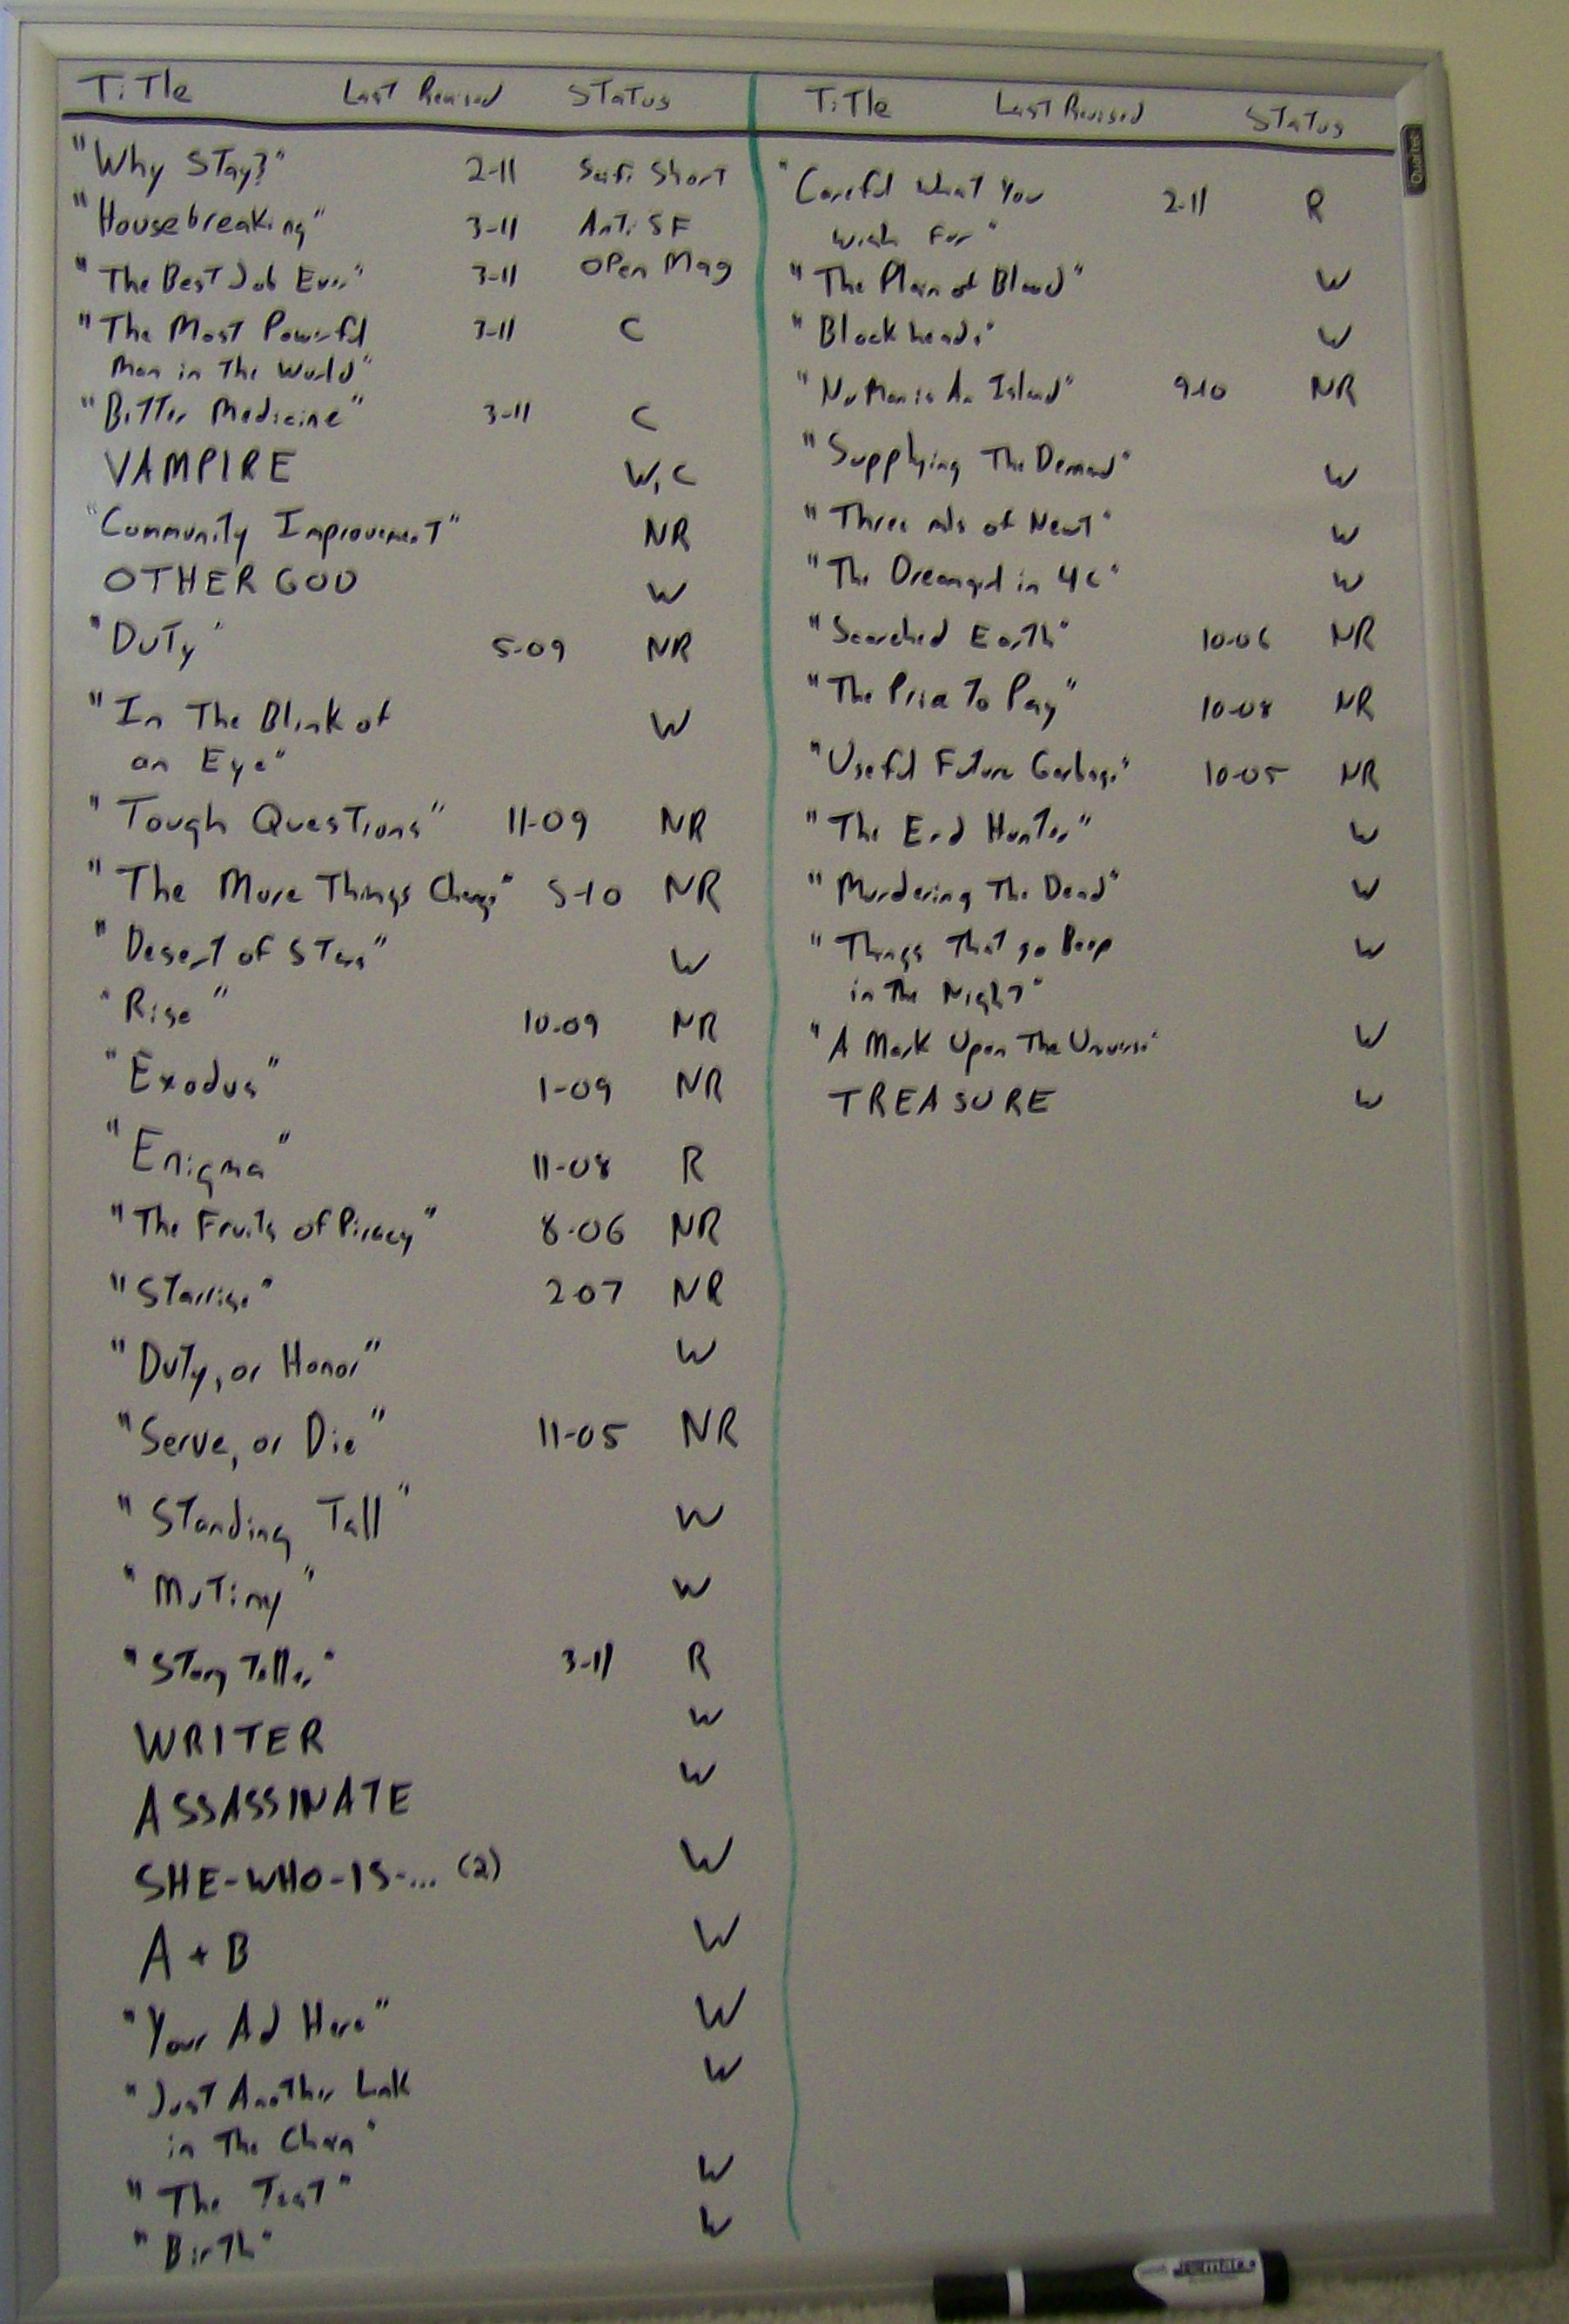 Title Last Revised Status
"Why Stay?" 2-11 Scifi Short
"Housebreaking" 3-11 Anti SF
"The Best Job Ever" 3-11 Open Mag
"The Most Powerful 3-11 C
Man in The World"
"Bitter Medicine" 3-11 C
VAMPIRE W, C
"Community Improvement" NR
OTHER GOD W
"Duty" 5-09 NR
"In The Blink of W
an Eye"
"Tough Questions" 11-09 NR
"The More Things Change" 5-10 NR
"Desert of Stars" W
"Rise" 10-09 NR
"Exodus" 1-09 NR
"Enigma" 11-08 R
"The Fruits of Piracy" 8-06 NR
"Starrise" 2-07 NR
"Duty, or Honor" W
"Serve, or Die" 11-05 NR
"Standing Tall" W
"Mutiny" W
"Story Teller" 3-11 R
WRITER W
ASSASSINATE W
SHE-WHO-IS-... (2) W
A + B W
"Your Ad Here" W
"Just Another Link W
in The Chain"
"The Test" W
"Birth" W
Title Last Revised Status
"Careful What You 2-11 R
Wish For"
"The Plain of Blood" W
"Blockheads" W
"No Man is An Island" 9-10 NR
"Supplying The Demand" W
"Three mls of Newt" W
"The Dreamgirl in 4C" W
"Scorched Earth" 10-06 NR
"The Price To Pay" 10-08 NR
"Useful Future Garbage" 10-05 NR
"The End Hunter" W
"Murdering The Dead" W
"Things That go Beep W
in The Night"
"A Mark Upon The Universe" W
TREASURE W
Quartet